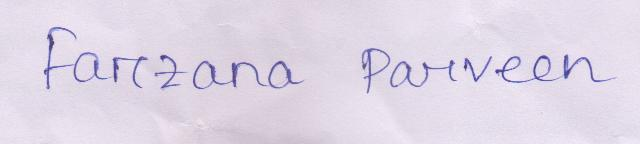 Farzana Parveen